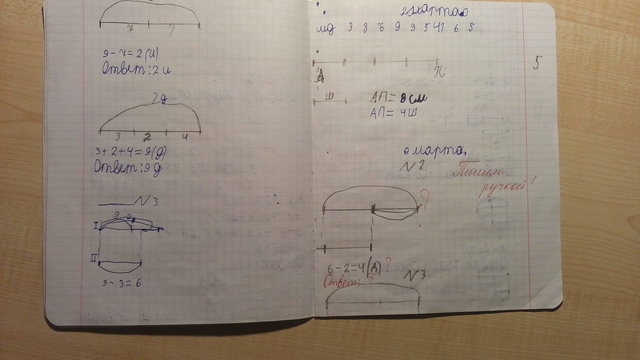 7 ?
9-7=2(и)
Ответ: 2 и
? д
3 2 4
3+2+4=9(д)
Ответ: 9 д
N 3
I
II
9-3=6
марта
3 8 6 9 9 5 41 6 5
5
А П
Ш
АП= 8 см
АП = 4Ш
марта
N 2
Пишем
ручкой!
?
6-2=4(д)?
Ответ: ?
N 3